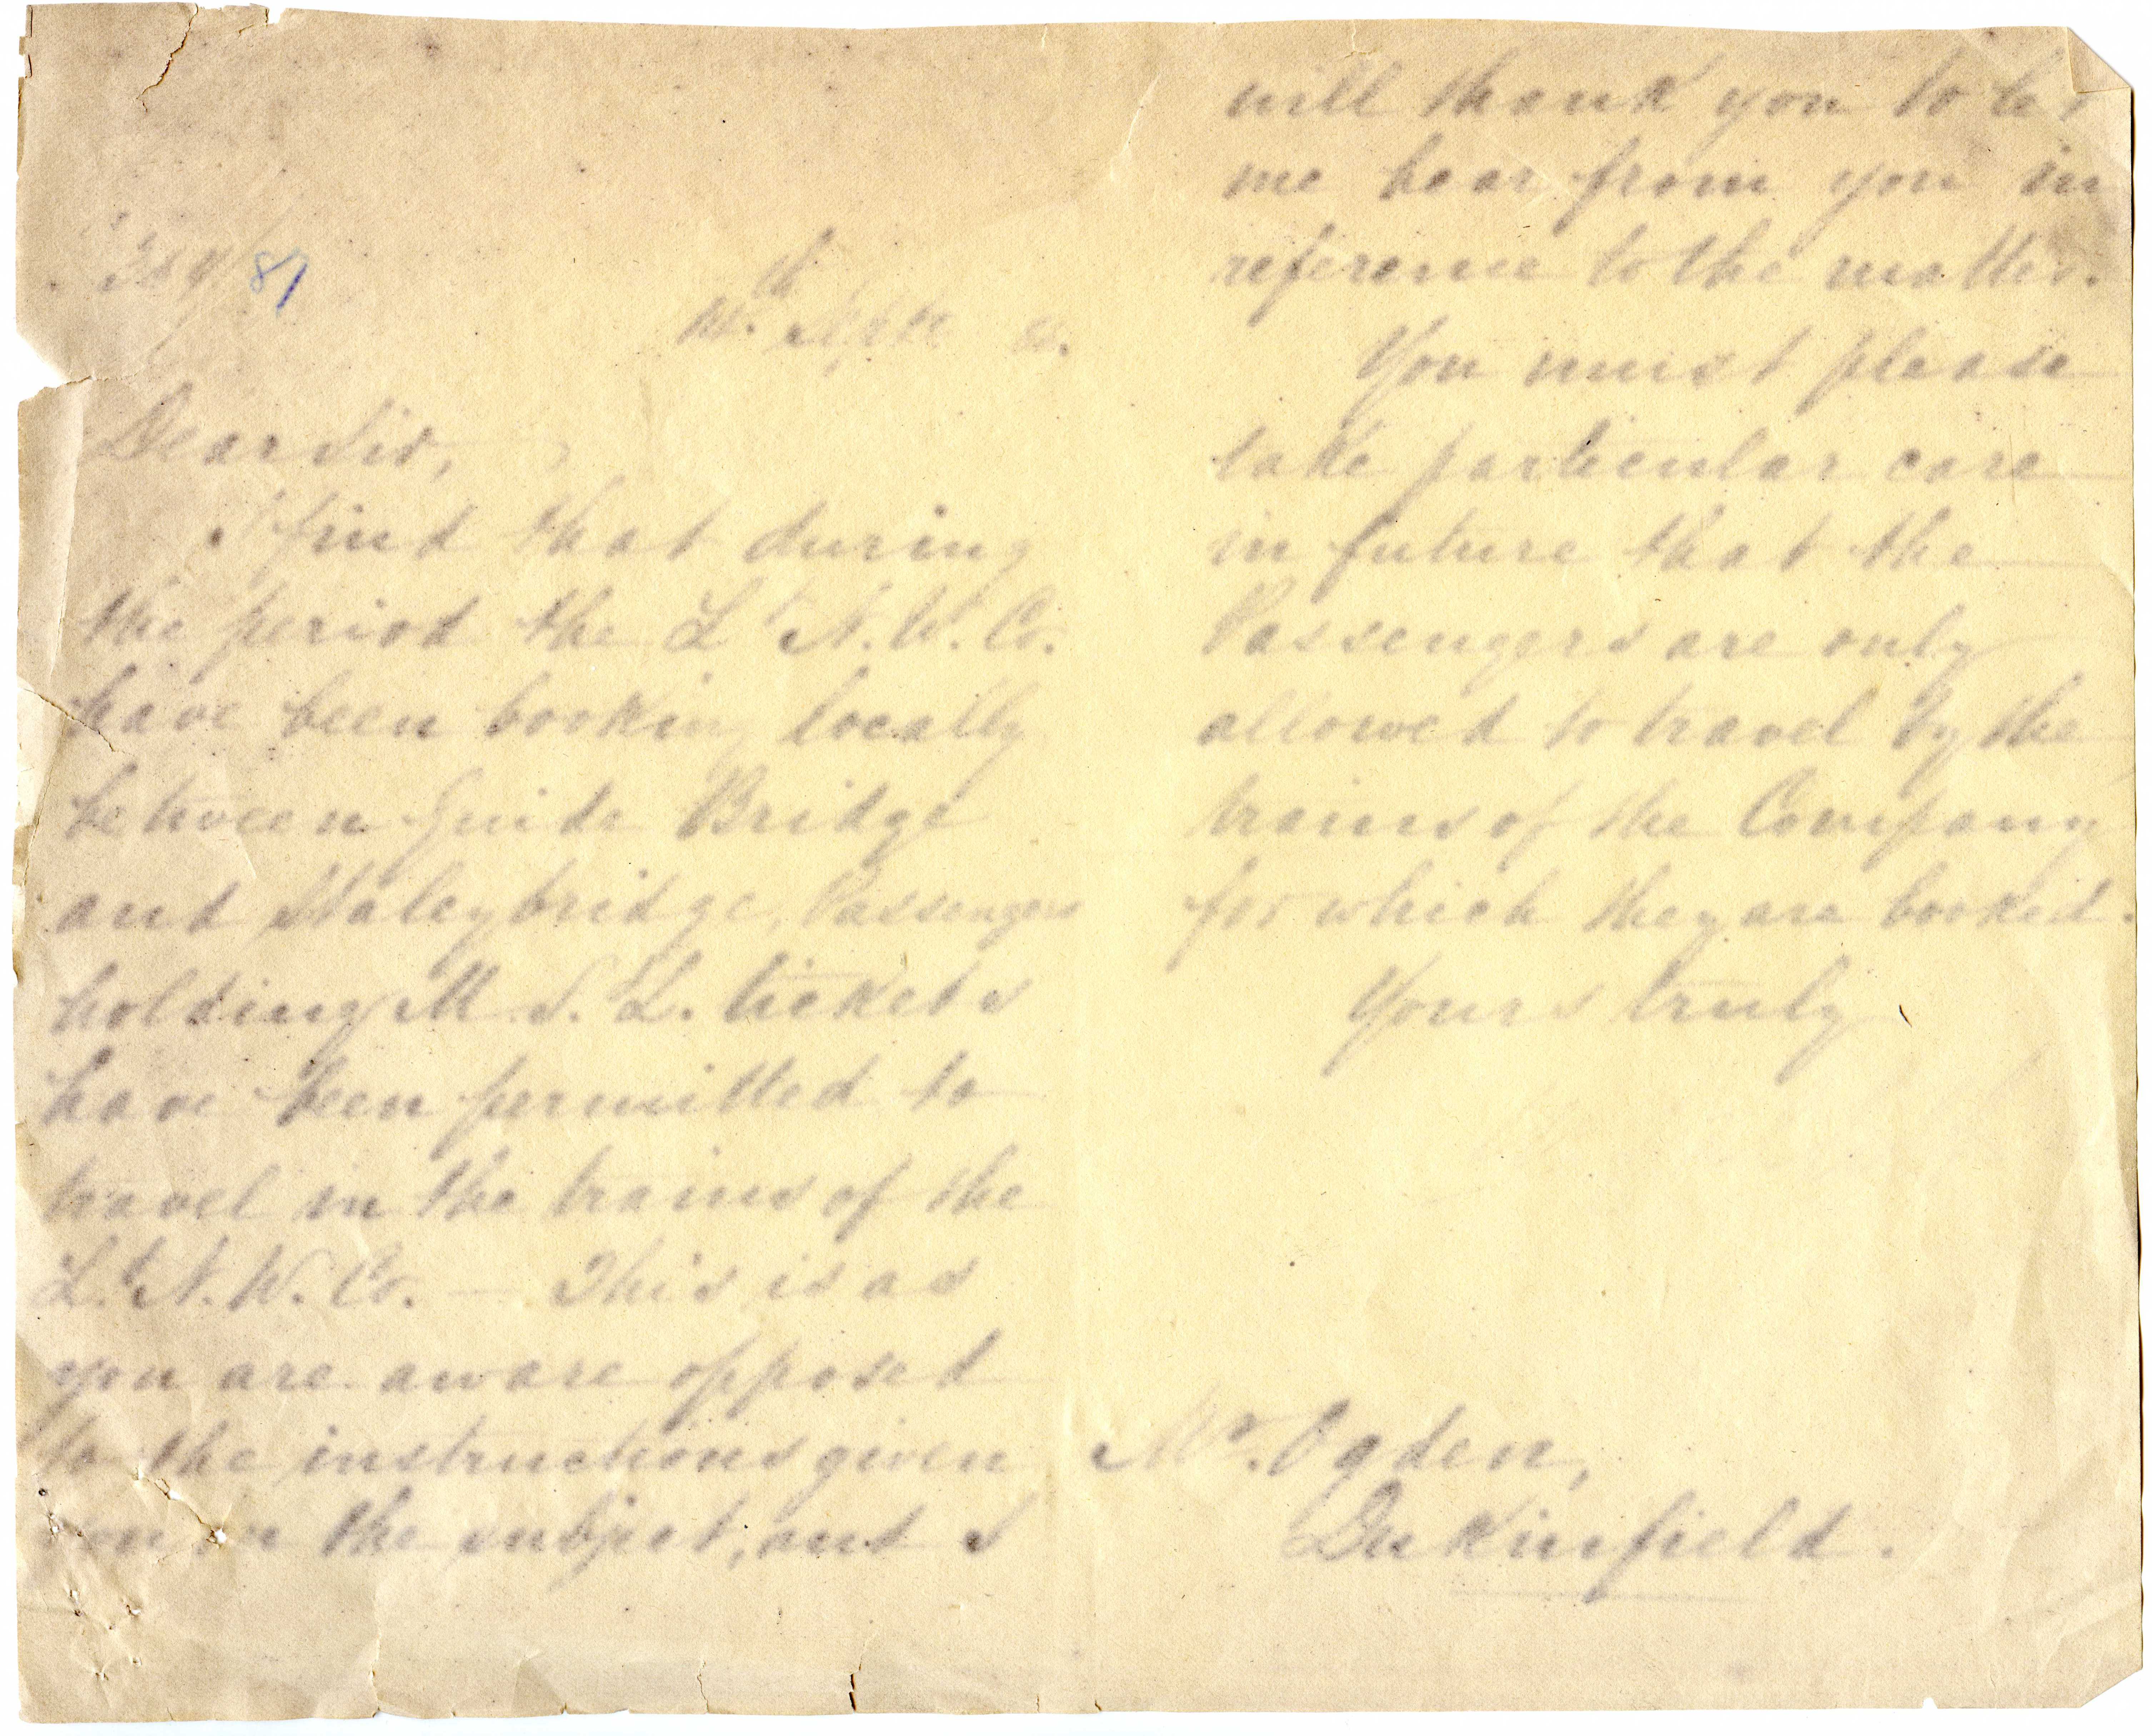 81
Septr
Dear Sir,
I find that during
the period the L & N. W. Co.
have been booking locally
between Guide Bridge
and Staleybridge, Passengers
holding M. S. L. tickets
have been permitted to
travel in the trains of the
L & N. W. Co. — This is as
you are aware opposed
to the instructions given
you on the subject, and I
will thank you to let
me hear from you in
reference to the matter.
You must please
take particular care
in future that the
Passengers are only
allowed to travel by the
trains of the Company
for which they are booked.
Yours truly
Mr. Ogden,
Dukinfield.